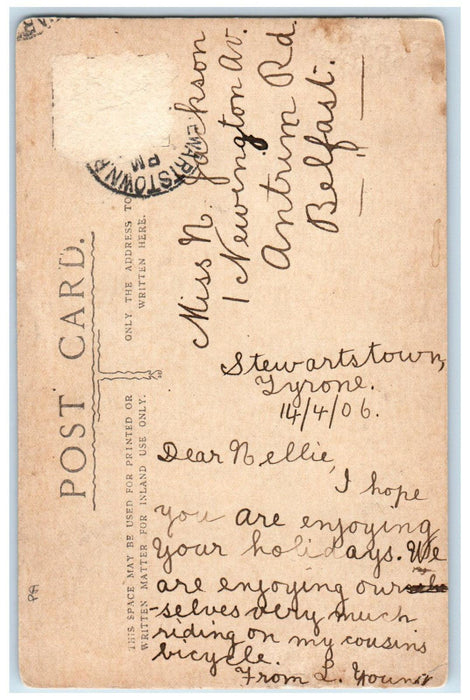 POST CARD.
THIS SPACE MAY BE USED FOR PRINTED OR
WRITTEN MATTER FOR INLAND USE ONLY.
ONLY THE ADDRESS TO
WRITTEN HERE.
EWARTSTOWN
PM
Miss N Jackson
1 Newington Av.
Antrim Rd.
Belfast.
Stewartstown,
Tyrone.
14/4/06.
Dear Nellie,
I hope
you are enjoying
your holidays. We
are enjoying our
-selves very much
riding on my cousins
bicycle.
From L. Young